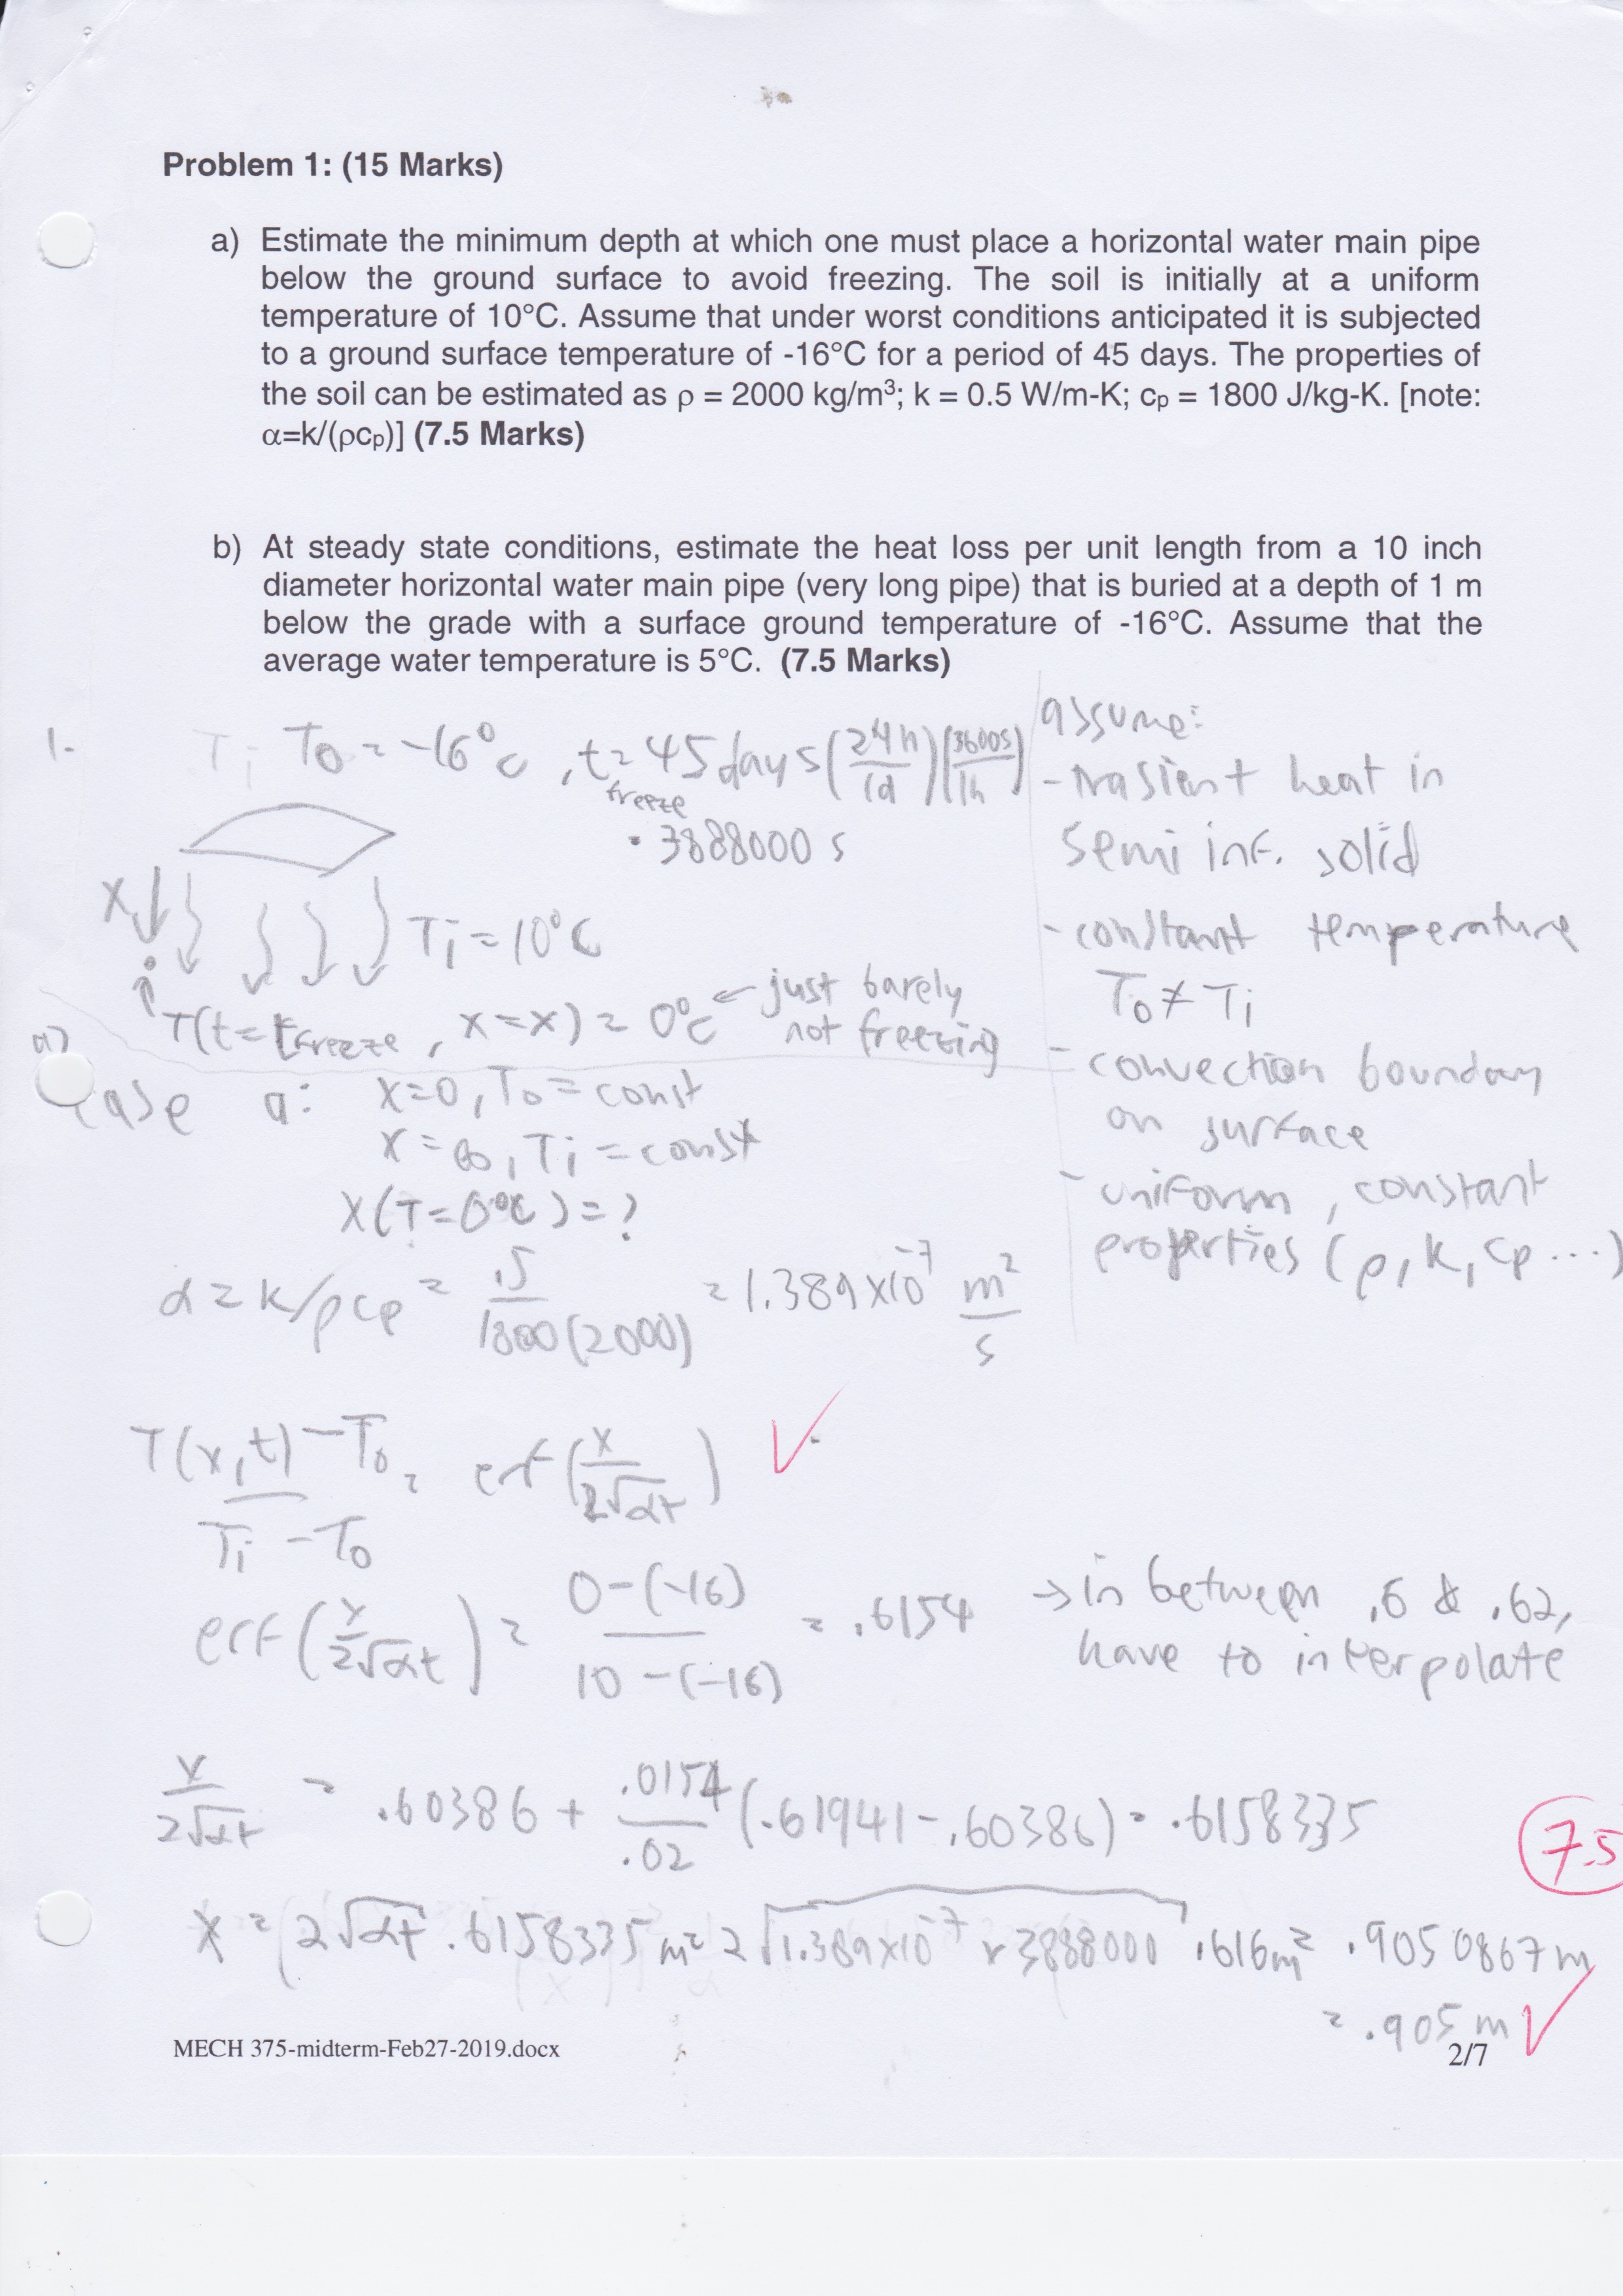 Problem 1: (15 Marks)
a) Estimate the minimum depth at which one must place a horizontal water main pipe
below the ground surface to avoid freezing. The soil is initially at a uniform
temperature of 10°C. Assume that under worst conditions anticipated it is subjected
to a ground surface temperature of -16°C for a period of 45 days. The properties of
the soil can be estimated as ρ = 2000 kg/m³; k = 0.5 W/m-K; cp = 1800 J/kg-K. [note:
α=k/(ρcp)] (7.5 Marks)
b) At steady state conditions, estimate the heat loss per unit length from a 10 inch
diameter horizontal water main pipe (very long pipe) that is buried at a depth of 1 m
below the grade with a surface ground temperature of -16°C. Assume that the
average water temperature is 5°C. (7.5 Marks)
1.
Ti To = -16°C , t freeze = 45 days (24h/1d)(3600s/1h)
= 3888000 s
x Ti = 10°C
T(t=tfreeze, x=x) = 0°C ← just barely
not freezing
assume:
- trasient heat in
semi inf. solid
- constant temperature
To ≠ Ti
- convection boundary
on surface
- uniform, constant
properties (ρ, k, cp ...)
a)
case a: x=0, To = const
x=∞, Ti = const
x(T=0°C) = ?
α = k/ρcp = .5/1800(2000) = 1.389 x10⁻⁷ m²/s
T(x,t) - To / Ti - To = erf(x/2√αt)
erf(x/2√αt) = 0-(-16) / 10-(-16) = .6154 → in between .6 & .62,
have to interpolate
x/2√αt = .60386 + .0154/.02 (.61941 - .60386) = .6158335
7.5
x = 2√αt · .6158335 m = 2√1.389x10⁻⁷ x 3888000 · .616m = .9050867 m
= .905 m
MECH 375-midterm-Feb27-2019.docx
2/7